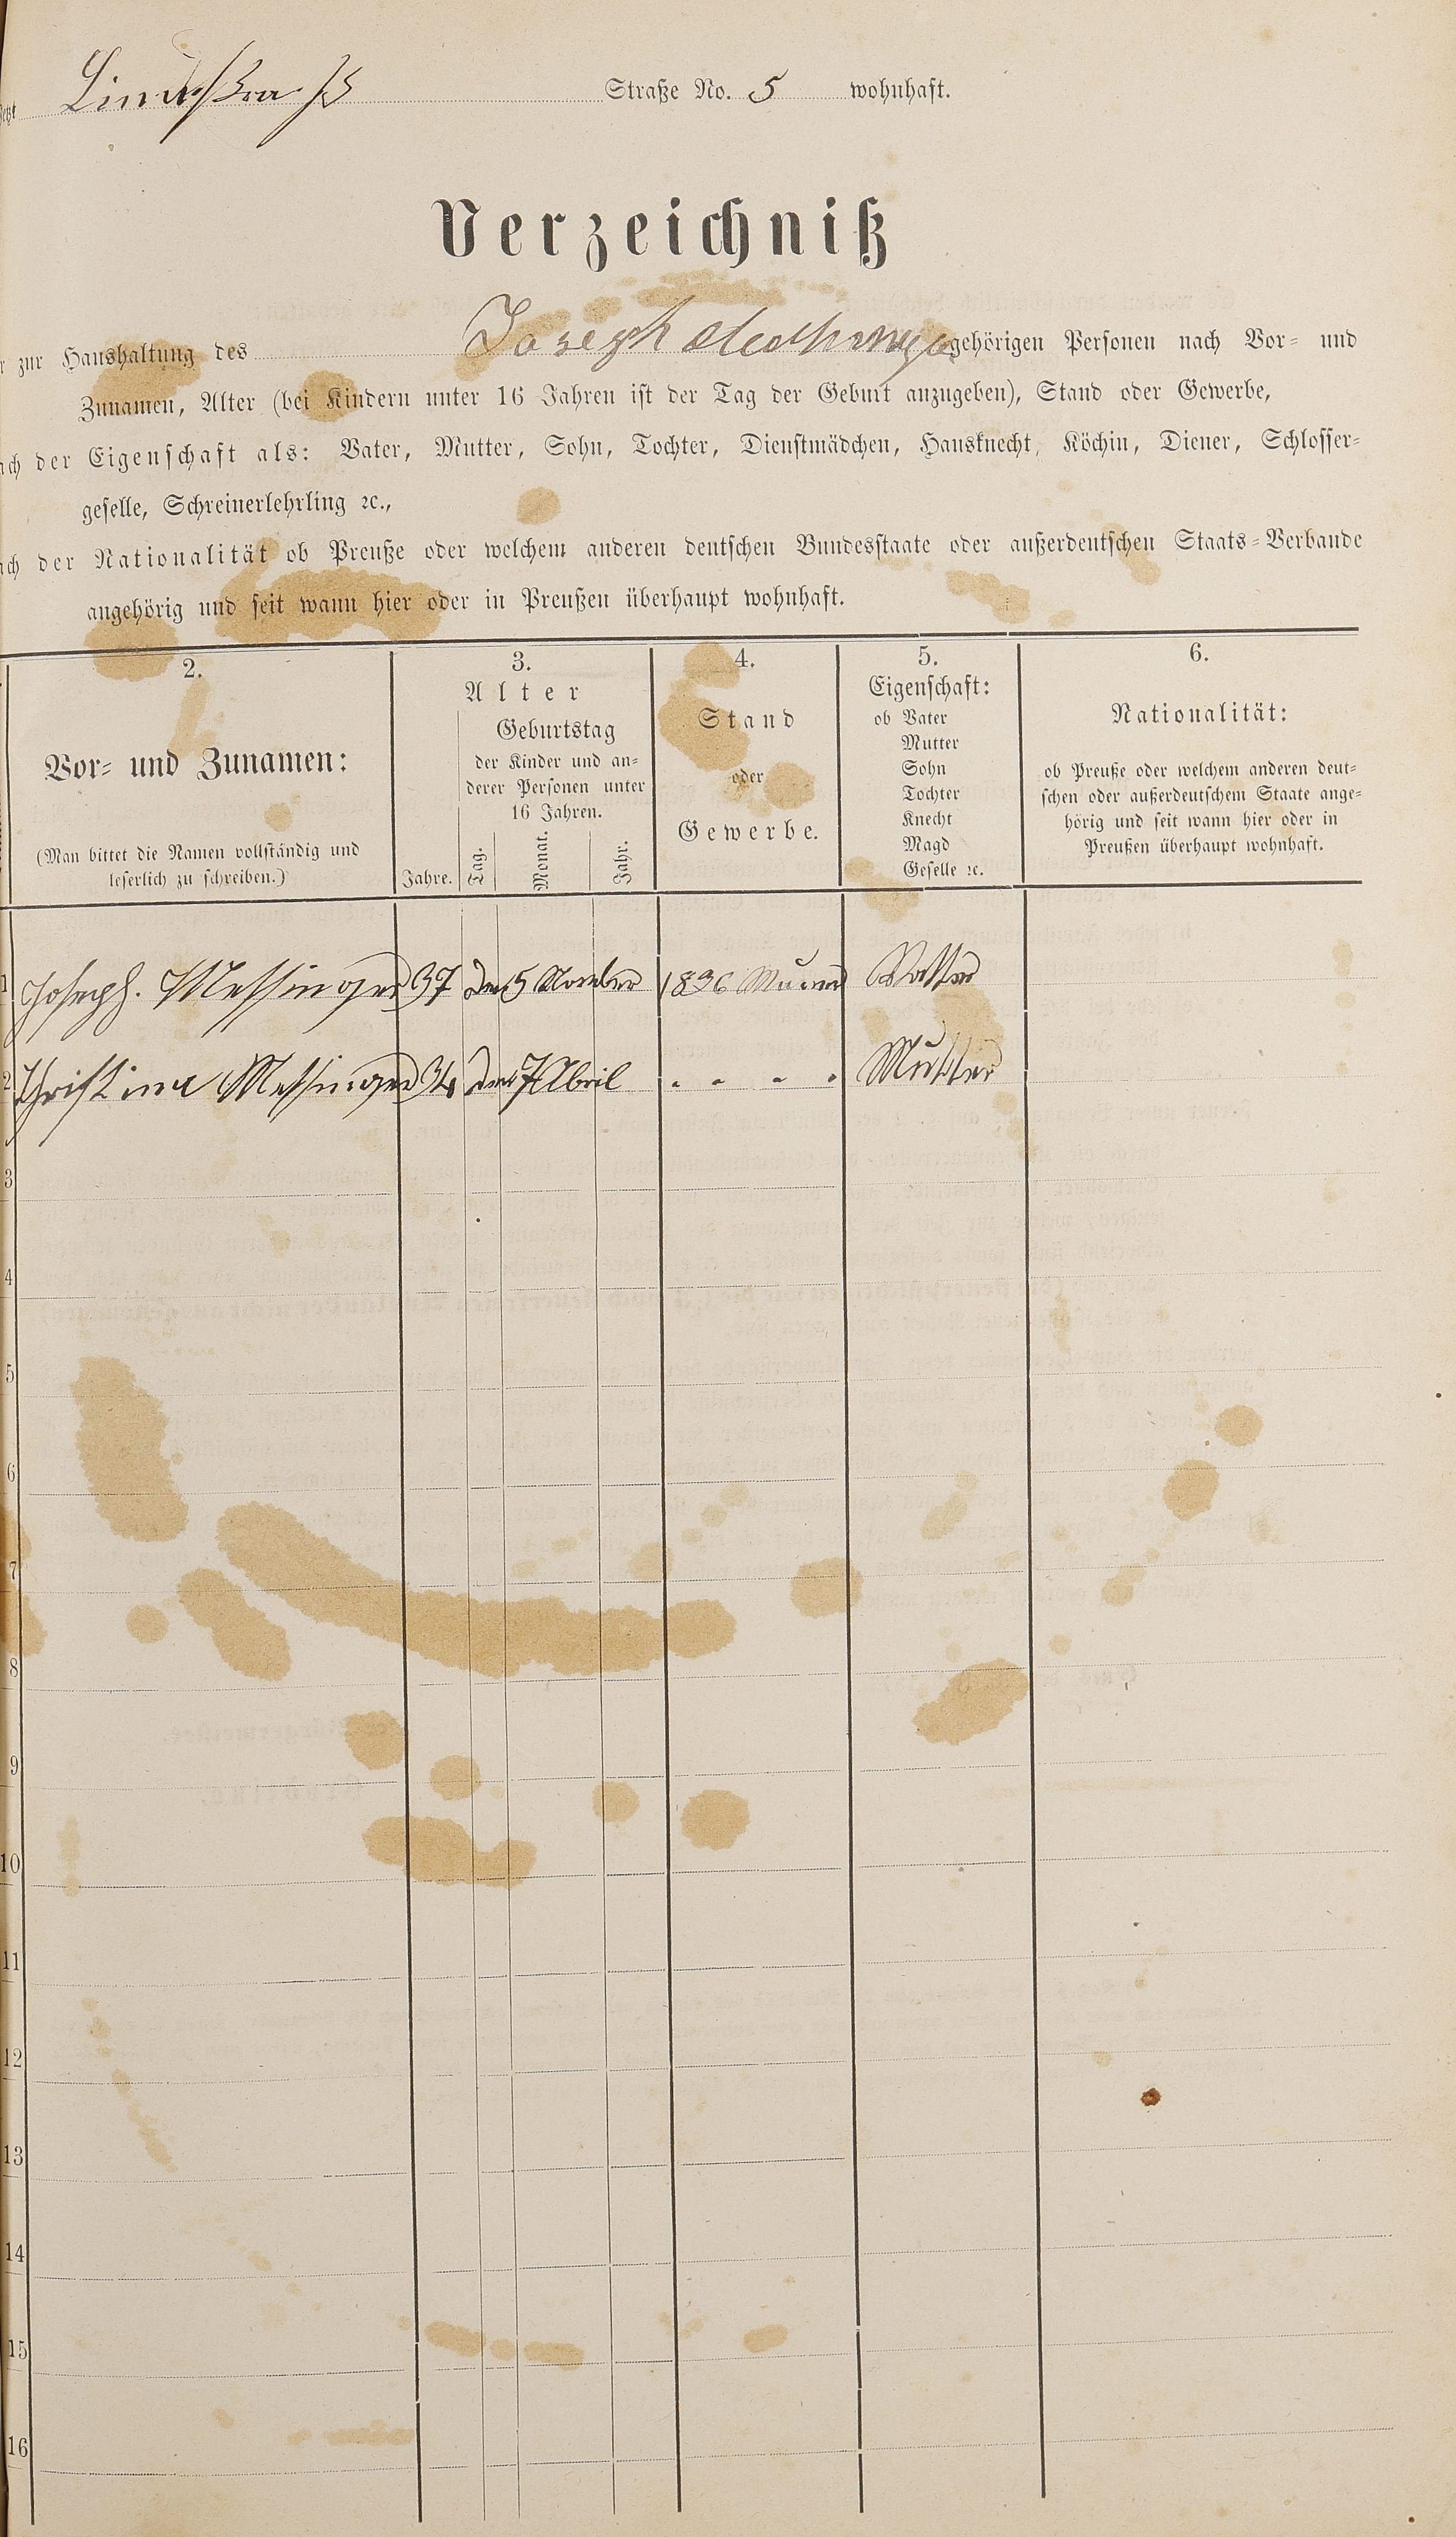 Lindestraße Straße No. 5 wohnhaft.
Verzeichniß
zur Haushaltung des Joseph gehörigen Personen nach Vor- und
Zunamen, Alter (bei Kindern unter 16 Jahren ist der Tag der Geburt anzugeben), Stand oder Gewerbe,
der Eigenschaft als: Vater, Mutter, Sohn, Tochter, Dienstmädchen, Hausknecht, Köchin, Diener, Schlosser-
geselle, Schreinerlehrling ꝛc.,
der Nationalität ob Preuße oder welchem anderen deutschen Bundesstaate oder außerdeutschen Staats-Verbande
angehörig und seit wann hier oder in Preußen überhaupt wohnhaft.
2.
Vor- und Zunamen:
(Man bittet die Namen vollständig und
leserlich zu schreiben.)
3.
Alter
Geburtstag
der Kinder und an-
derer Personen unter
16 Jahren.
Jahre. Tag. Monat. Jahr.
4.
Stand
oder
Gewerbe.
5.
Eigenschaft:
ob Vater
Mutter
Sohn
Tochter
Knecht
Magd
Geselle ꝛc.
6.
Nationalität:
ob Preuße oder welchem anderen deut-
schen oder außerdeutschem Staate ange-
hörig und seit wann hier oder in
Preußen überhaupt wohnhaft.
1 Joseph. Messinger 37 den 5 November 1836 Vatter
2 Christina Messinger 34 den 7 Abril " " " " Mutter
3
4
5
6
7
8
9
10
11
12
13
14
15
16